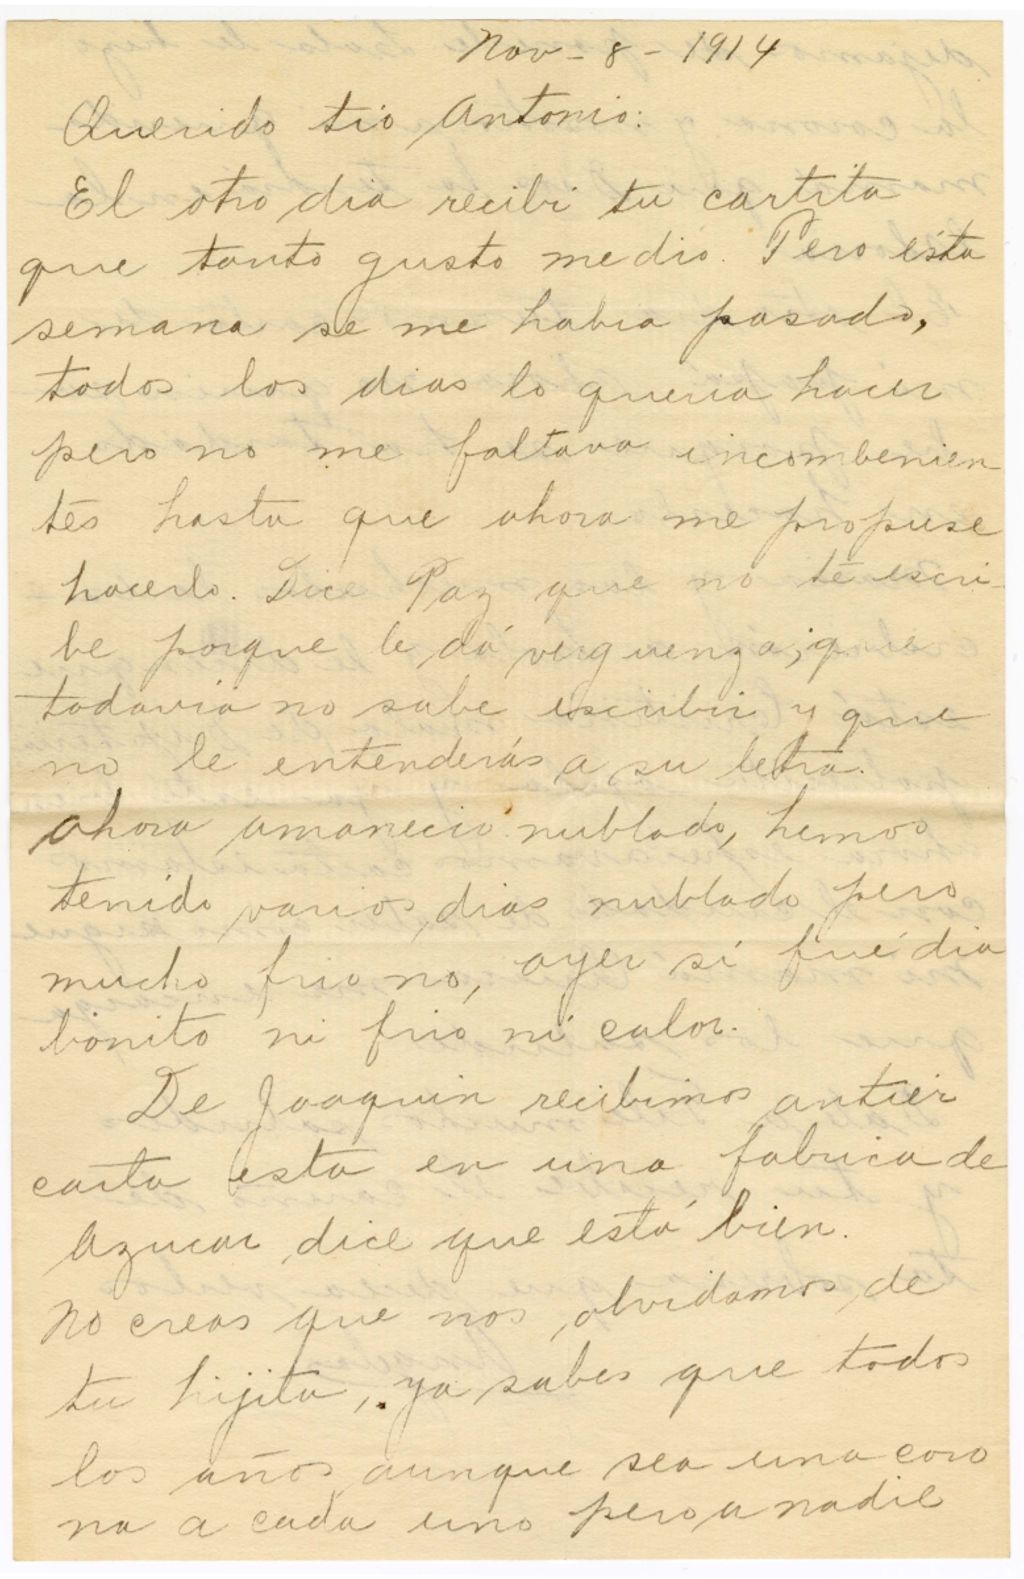 Nov - 8 - 1914
Querido tio Antonio:
El otro dia recibi tu cartita
que tanto gusto me dio. Pero ésta
semana se me habia pasado,
todos los dias lo queria hacer
pero no me faltava incombenien-
tes hasta que ahora me propuse
hacerlo. Dice Paz que no té escri-
be porque le dá verguenza, que
todavia no sabe escribir y que
no le entenderás a su letra.
Ahora amanecio nublado, hemos
tenido varios dias nublado pero
mucho frio no, ayer sí fué dia
bonito ni frio ni calor.
De Joaquin recibimos antier
carta esta en una fabrica de
Azucar dice que está bien.
No creas que nos olvidamos de
tu hijita, ya sabes que todos
los años aunque sea una coro
na a cada uno pero a nadie